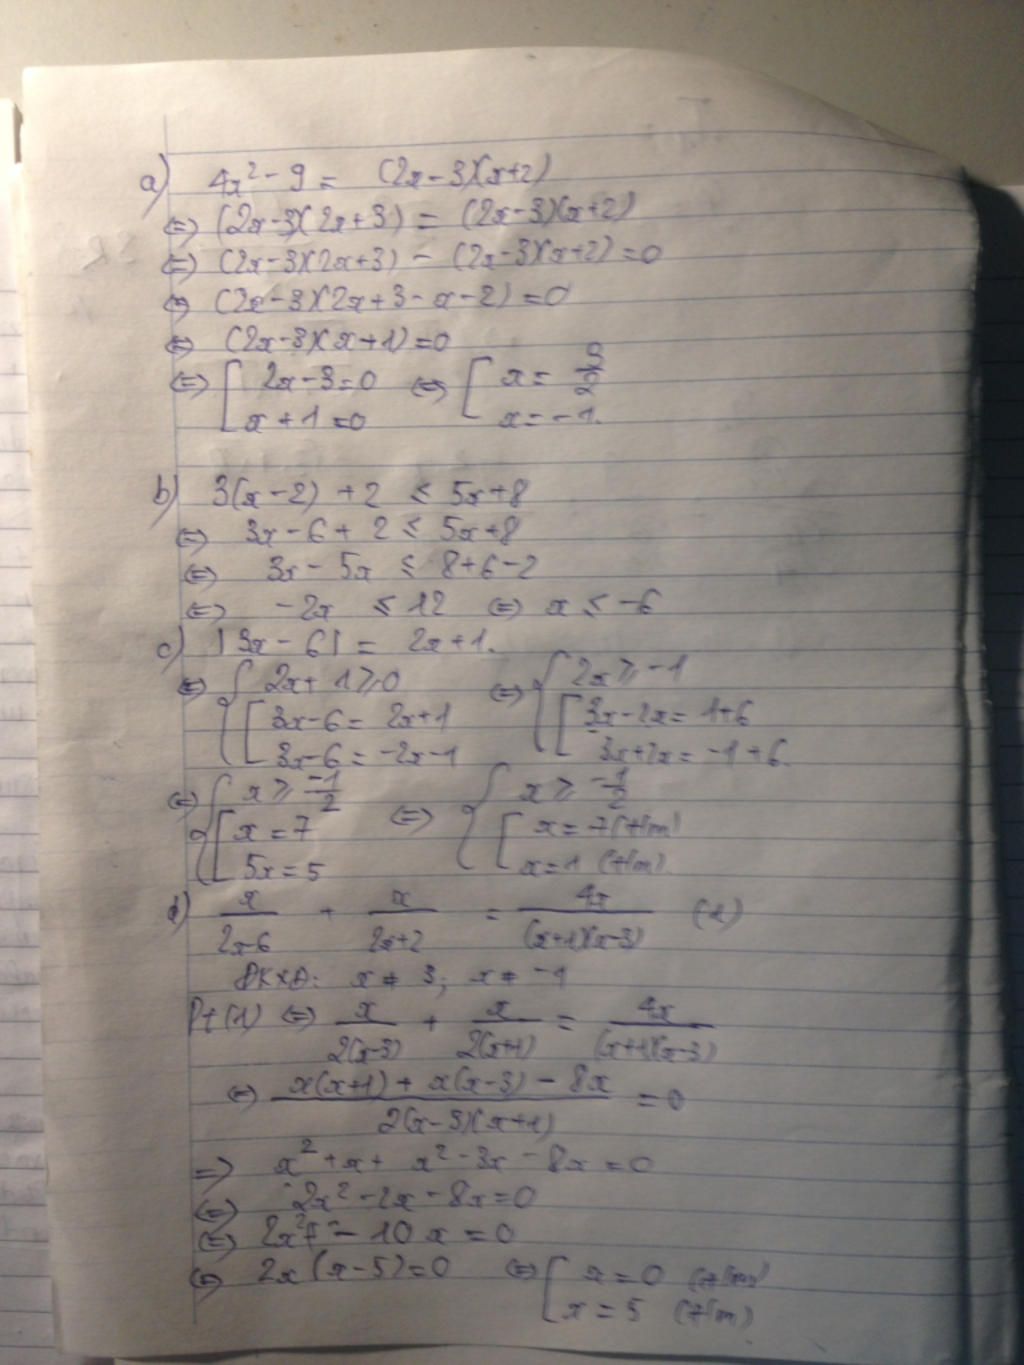 a) 4x² - 9 = (2x-3)(x+2)
⇔ (2x-3)(2x+3) = (2x-3)(x+2)
⇔ (2x-3)(2x+3) - (2x-3)(x+2) = 0
⇔ (2x-3)(2x+3-x-2) = 0
⇔ (2x-3)(x+1) = 0
⇔ [ 2x-3=0 ⇔ [ x = 3/2
x+1=0 x = -1.
b) 3(x-2) + 2 ≤ 5x+8
⇔ 3x-6+2 ≤ 5x+8
⇔ 3x-5x ≤ 8+6-2
⇔ -2x ≤ 12 ⇔ x ≤ -6
c) |3x-6| = 2x+1.
⇔ { 2x+1 ≥ 0 ⇔ { 2x ≥ -1
[ 3x-6 = 2x+1 [ 3x-2x = 1+6
3x-6 = -2x-1 3x+2x = -1+6.
⇔ { x ≥ -1/2 ⇔ { x ≥ -1/2
[ x = 7 [ x = 7 (t/m)
5x = 5 x = 1 (t/m)
d) x/(2x-6) + x/(2x+2) = 4x/((x+1)(x-3)) (1)
ĐKXĐ: x ≠ 3; x ≠ -1
Pt (1) ⇔ x/(2(x-3)) + x/(2(x+1)) = 4x/((x+1)(x-3))
⇔ (x(x+1) + x(x-3) - 8x)/(2(x-3)(x+1)) = 0
⇒ x² + x + x² - 3x - 8x = 0
⇔ 2x² - 2x - 8x = 0
⇔ 2x² - 10x = 0
⇔ 2x(x-5) = 0 ⇔ [ x = 0 (t/m)
x = 5 (t/m)